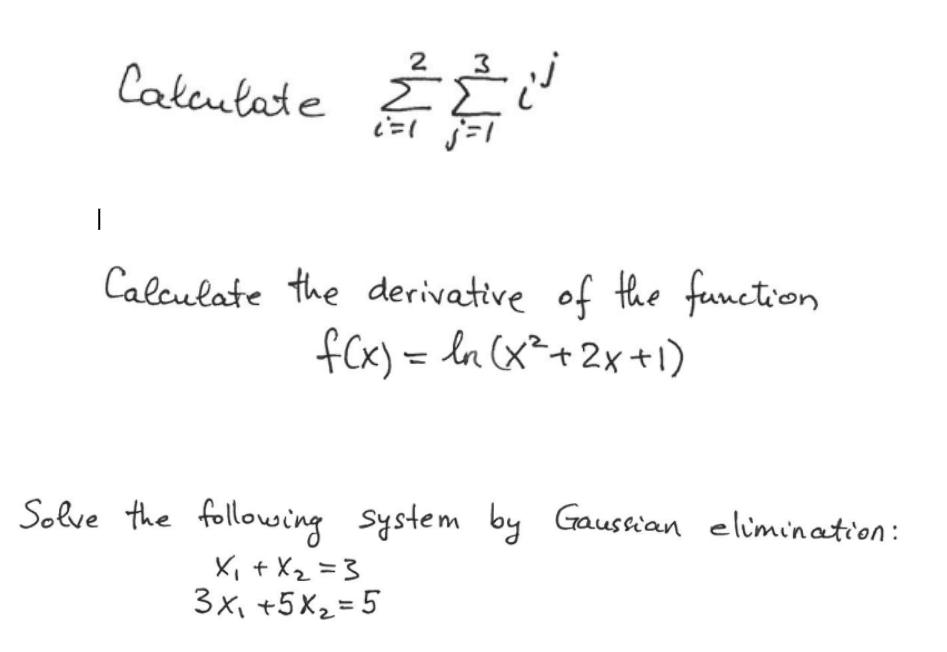 Calculate \sum_{i=1}^{2} \sum_{j=1}^{3} i^j
Calculate the derivative of the function
f(x) = ln (x² + 2x + 1)
Solve the following system by Gaussian elimination:
x₁ + x₂ = 3
3x₁ + 5x₂ = 5